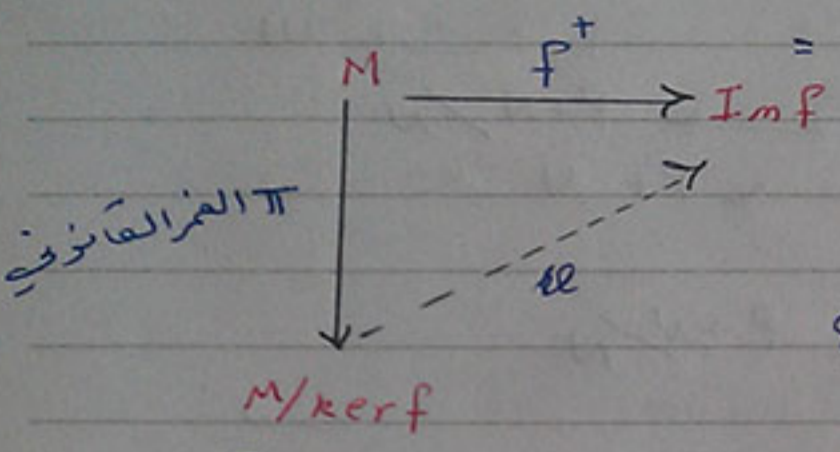 f⁺
M
Im f
=
π الغمر القانوني
M/kerf